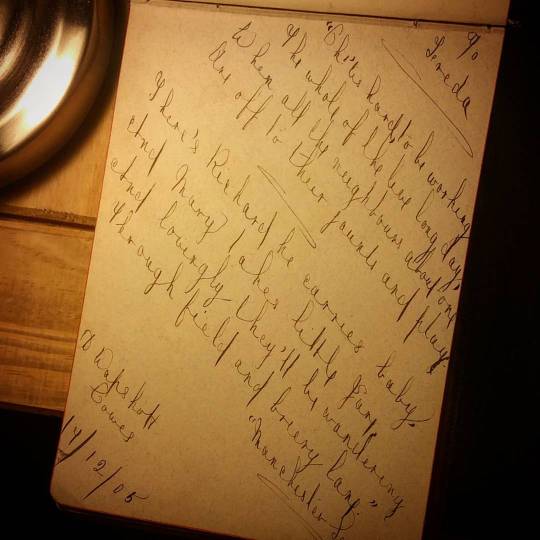 To
Freda
"Oh! 'tis hard to be working
The whole of the live long day,
When all the neighbours about one
Are off to their jaunts and play.
There's Richard he carries baby,
And Mary takes little Jane,
And lovingly they'll be wandering
Through field and briery lane."
"Manchester
Wapshott
Cowes
14/12/05